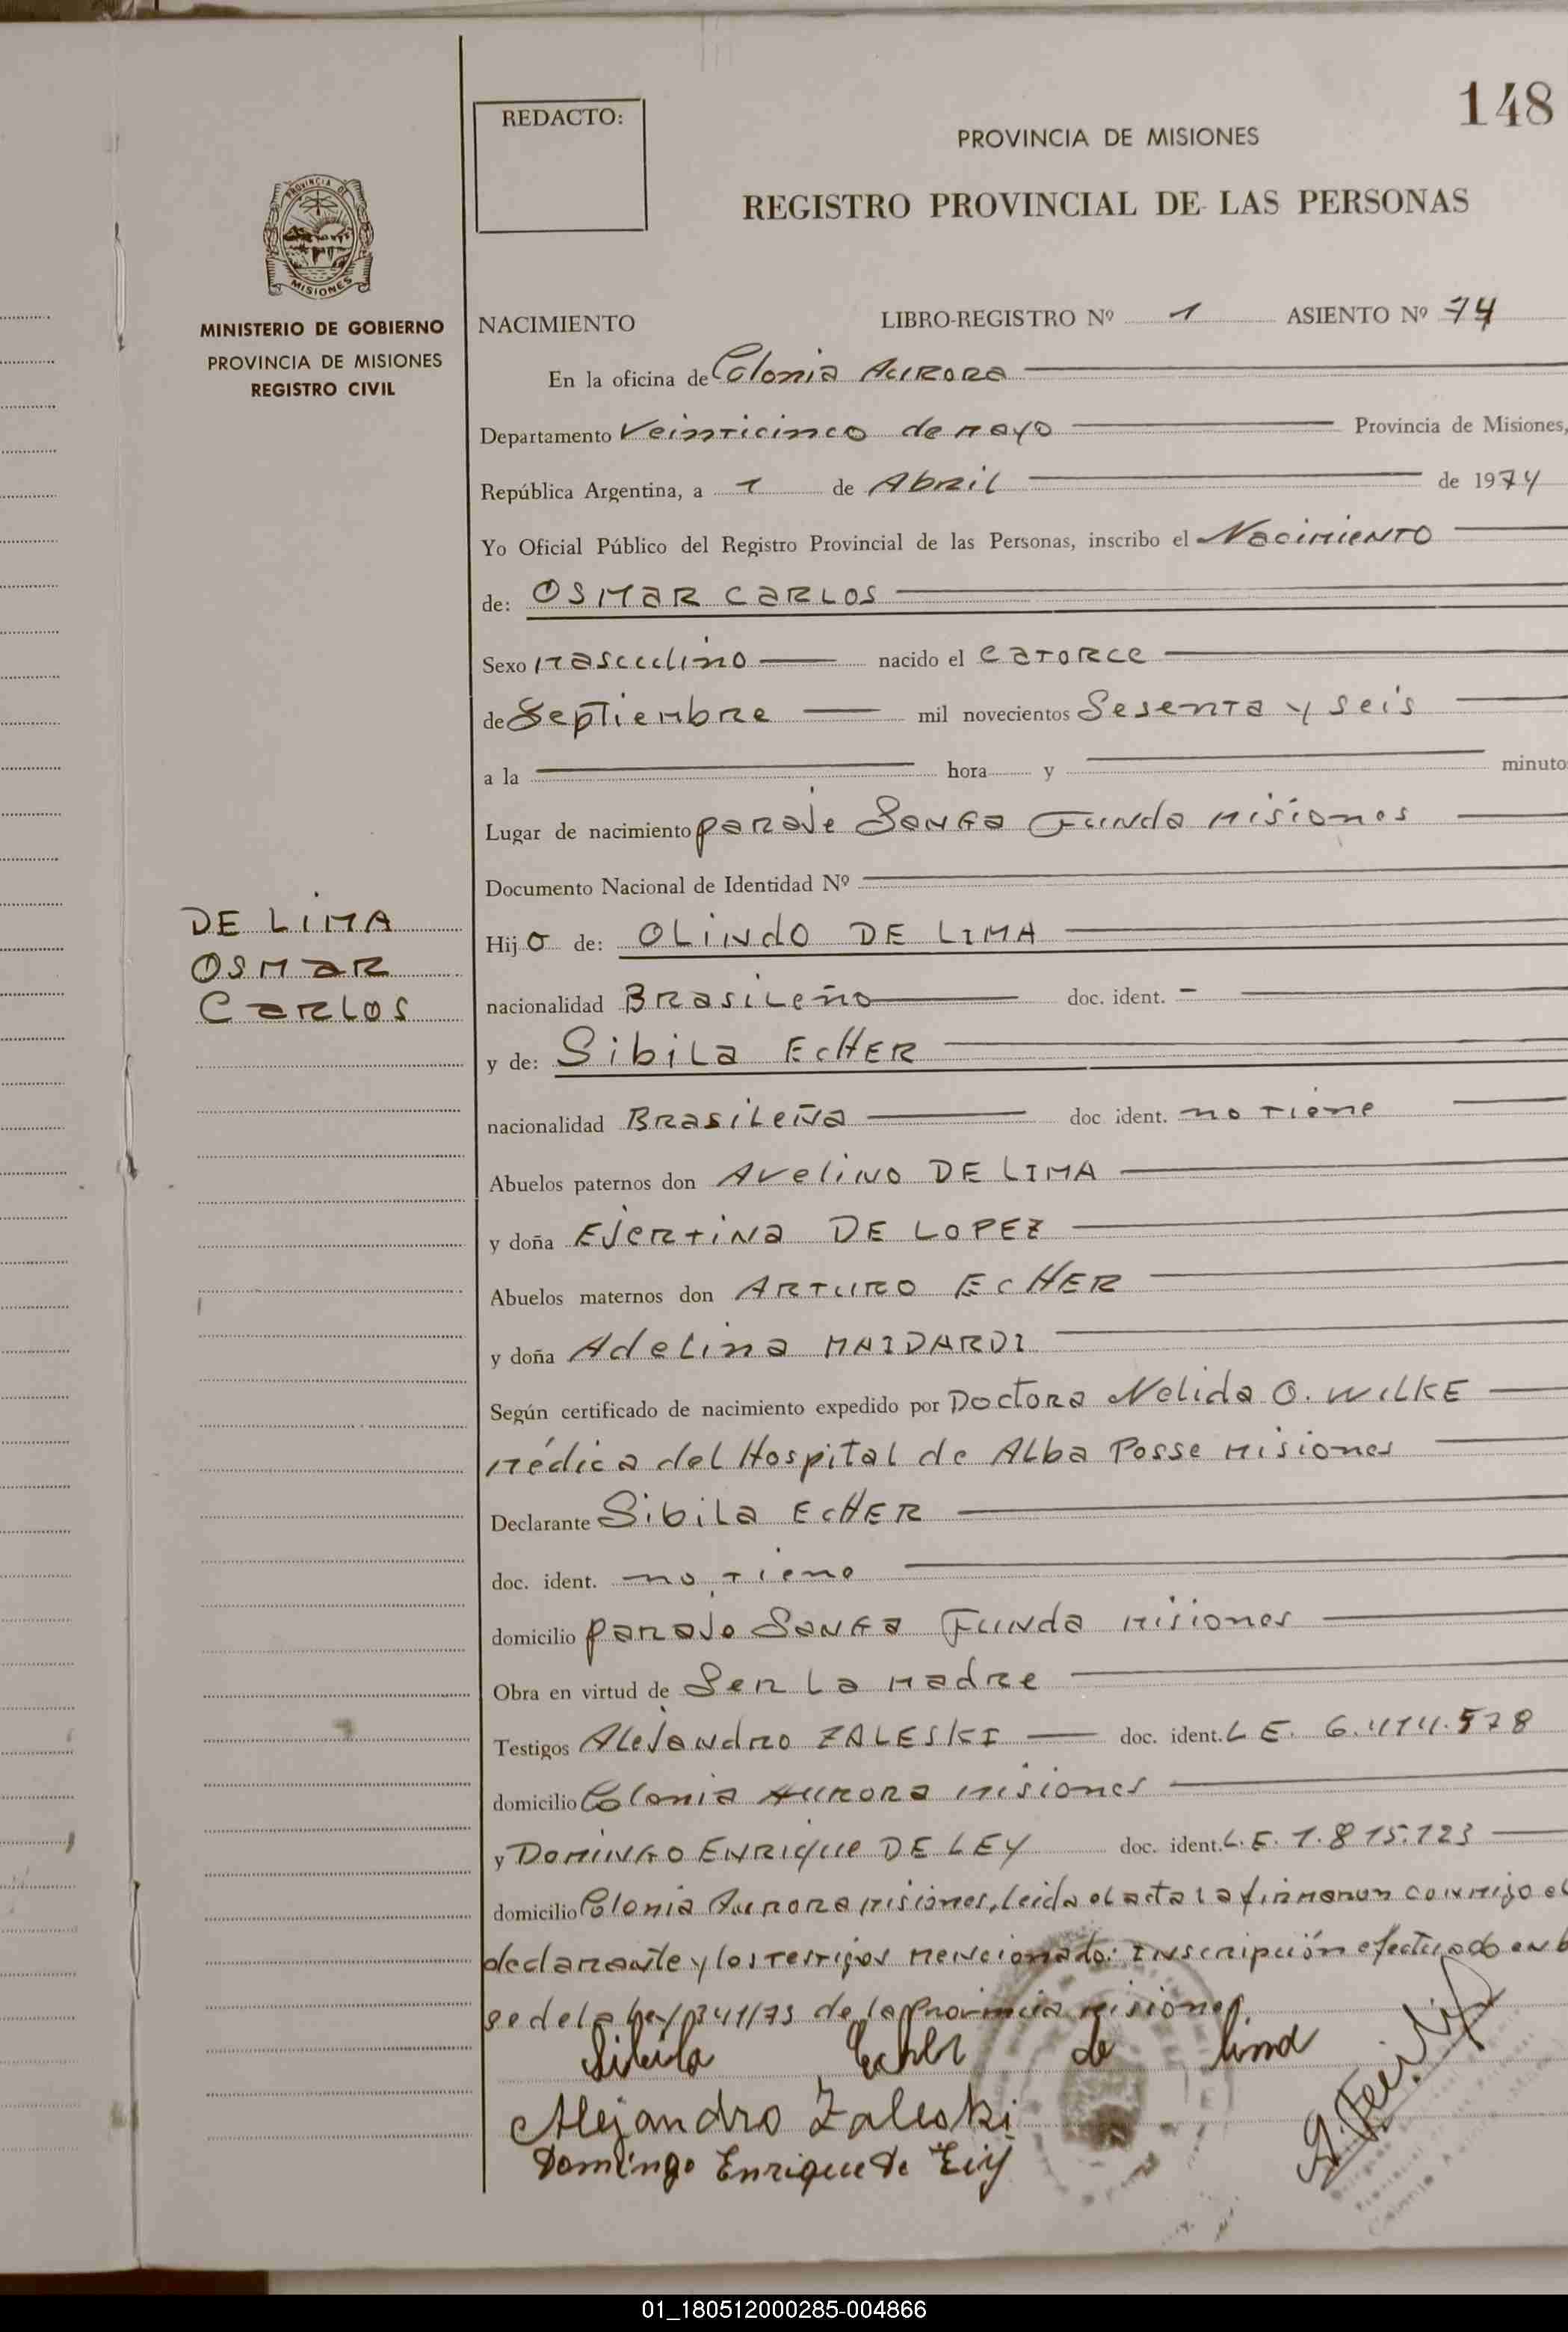 148
REDACTO:
PROVINCIA DE MISIONES
REGISTRO PROVINCIAL DE LAS PERSONAS
PROVINCIA DE MISIONES
MINISTERIO DE GOBIERNO
PROVINCIA DE MISIONES
REGISTRO CIVIL
NACIMIENTO LIBRO-REGISTRO Nº 1 ASIENTO Nº 74
En la oficina de Colonia Aurora
Departamento Veinticinco de mayo Provincia de Misiones,
República Argentina, a 1 de Abril de 1974
Yo Oficial Público del Registro Provincial de las Personas, inscribo el Nacimiento
de: OSMAR CARLOS
Sexo masculino nacido el catorce
de Septiembre mil novecientos Sesenta y seis
a la hora y minuto
Lugar de nacimiento paraje Sanga Funda misiones
Documento Nacional de Identidad Nº
DE LIMA
OSMAR
CARLOS
Hijo de: OLINDO DE LIMA
nacionalidad Brasileño doc. ident. -
y de: Sibila EcHER
nacionalidad Brasileña doc ident. no tiene
Abuelos paternos don Avelino DE LIMA
y doña EJertina DE LOPEZ
Abuelos maternos don ARTURO EcHER
y doña Adelina MAIDARDI
Según certificado de nacimiento expedido por Doctora Nelida O. WILKE
médica del Hospital de Alba Posse misiones
Declarante Sibila EcHER
doc. ident. no tiene
domicilio paraje Sanga Funda misiones
Obra en virtud de Ser la madre
Testigos Alejandro ZALESKI doc. ident. L E. 6.414.578
domicilio Colonia Aurora misiones
y DOMINGO ENRIQUE DE LEY doc. ident. L.E. 1.815.123
domicilio Colonia Aurora misiones, leida el acta la firmaron conmigo el
declarante y los testigos mencionado: Inscripción efectuado en b
se de la ley 341/73 de la Provincia misiones
Sibila Echer de lima
Alejandro Zaleski
Domingo Enrique De Ley
01_180512000285-004866